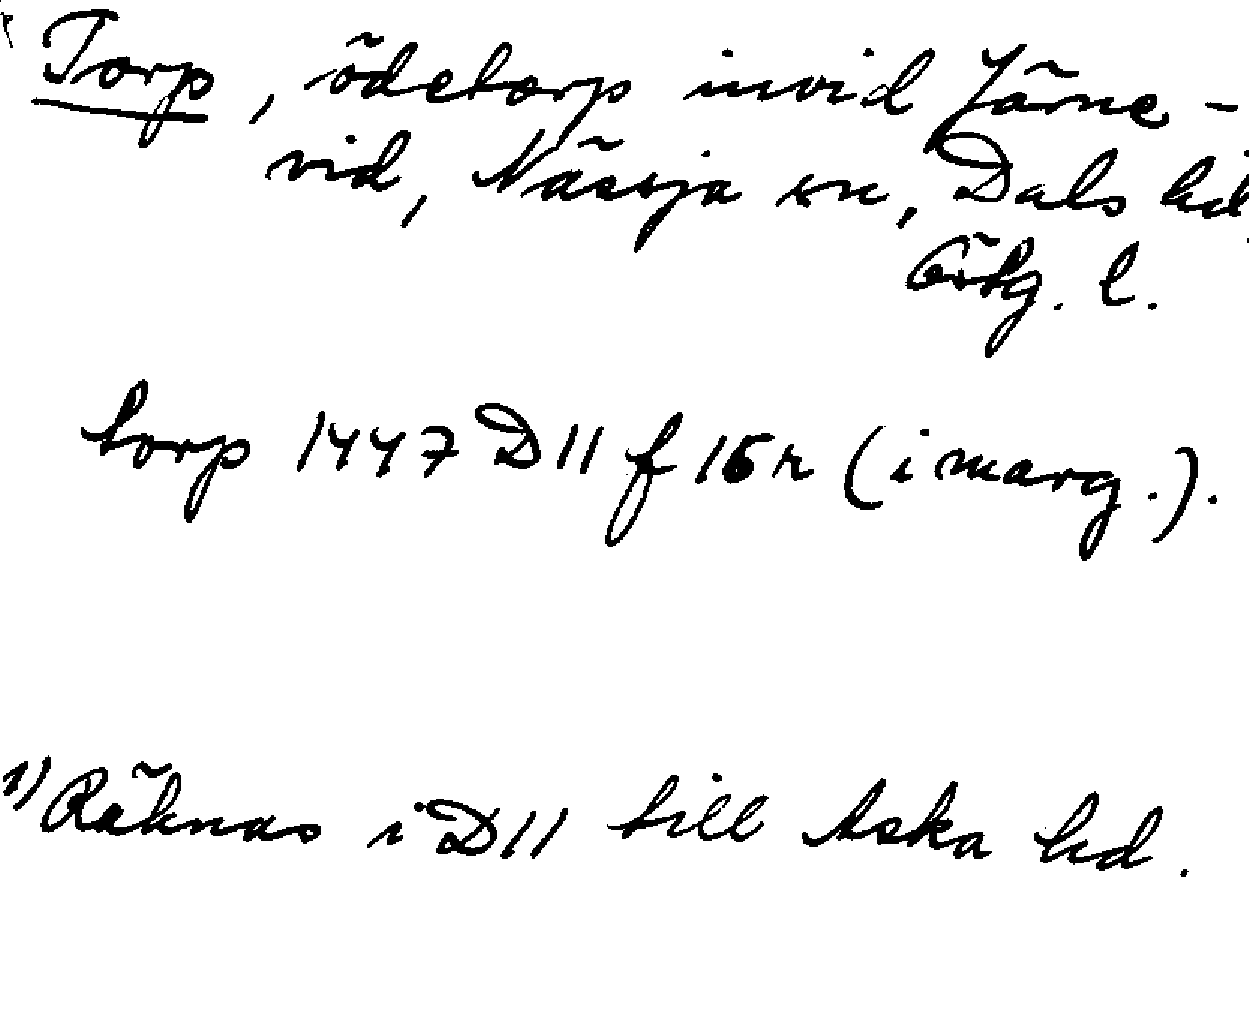 Torp, ödetorp invid Järne-
vid, Nässja sn, Dals hd,
Östg. l.
torp 1447 D11 f 16r (i marg.).
1) Räknas i D11 till Aska hd.